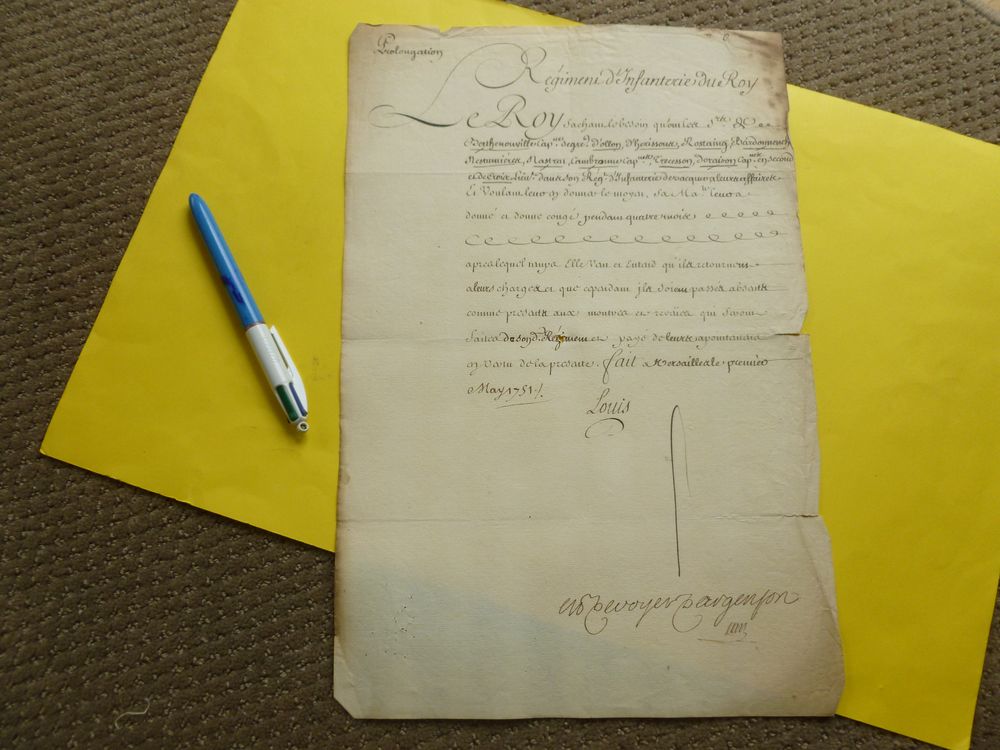 Prolongation
Regiment d'Infanterie du Roy
Le Roy Sachant le besoin qu'ont les Srs de
Berthenonville Capne degre d'ollon, d'herissoux, Rostaing, Bardonnench
Mestumières, Nastrac, Cambronne Capnes Crecesson, Doraison Capnes en second
et de Croix Lieut dans son Regt d'Infanterie de vacquer a leurs affaires
Et Voulant leur en donner le moyen, Sa Mate leur a
donné et donne congé pendant quatre mois
apres lequel temps Elle Veut et Entend qu'ils retournent
a leurs charges et que cependant ils soient passés absents
comme presents aux montres et reveües qui seront
faites de son d. Régiment et payé de leurs apointemens
en vertu de la presente. fait a Versailles le premier
May 1751 /.
Louis
M P de voyer d'argenson